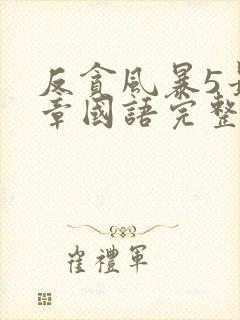 反貪風暴5最
章國語完整
崔禮軍